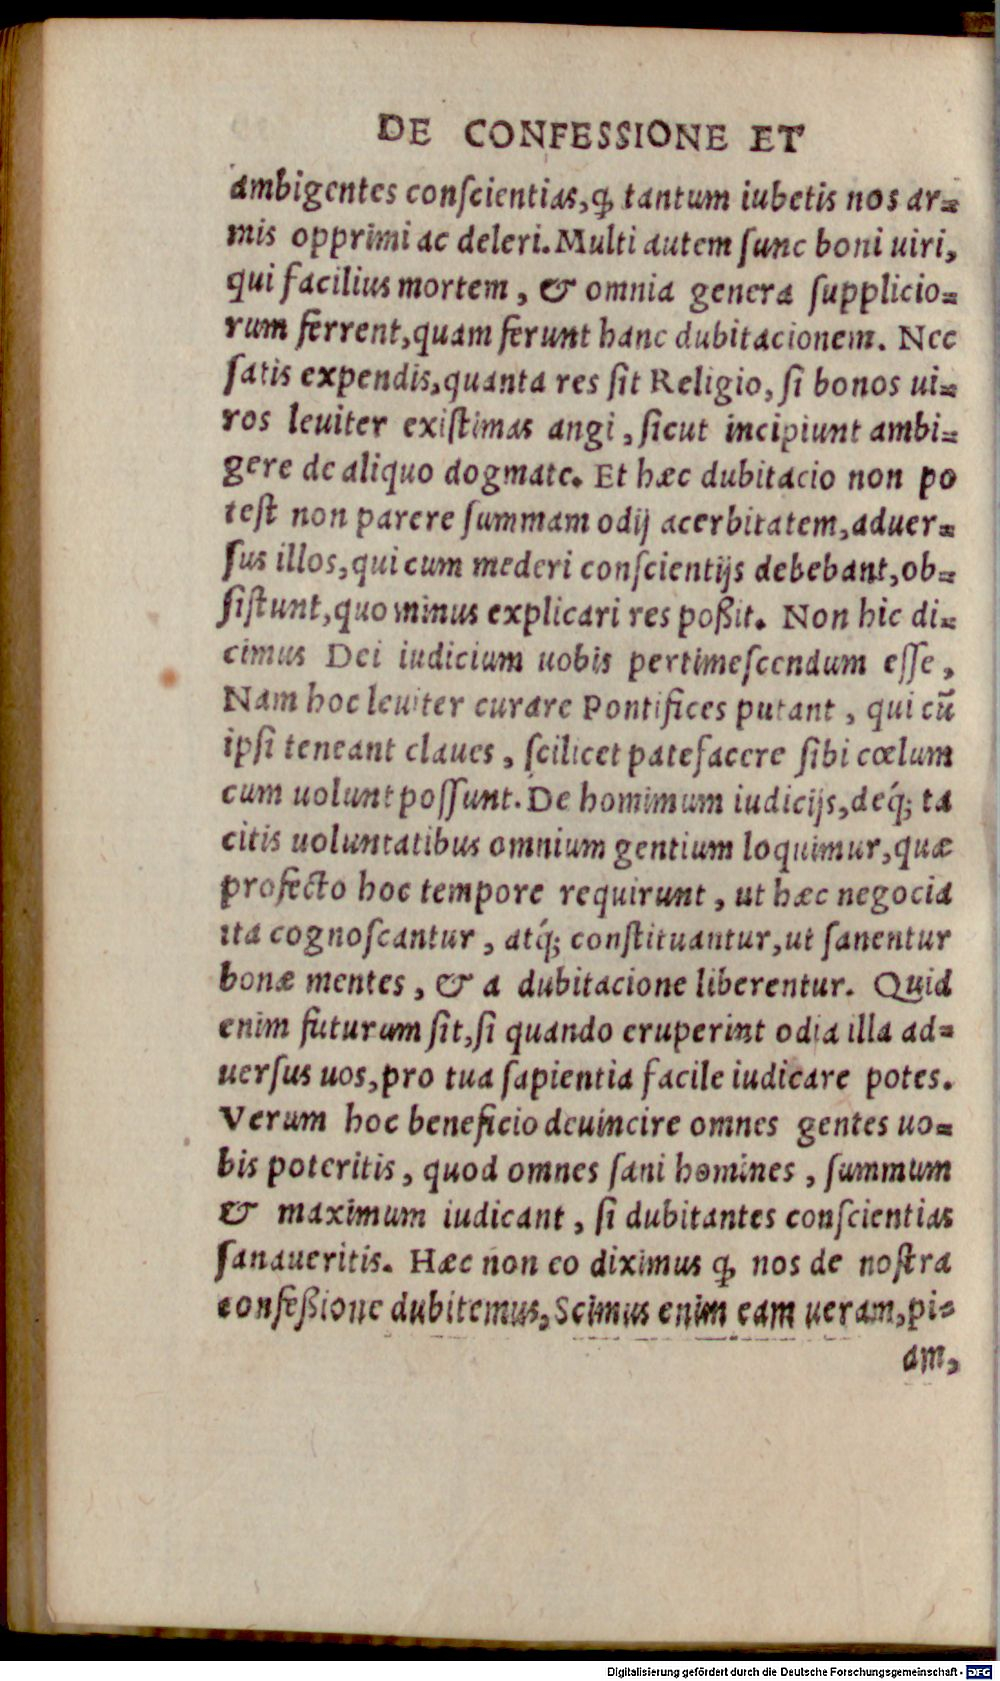 DE CONFESSIONE ET
ambigentes conſcientias, ꝙ tantum iubetis nos ar⸗
mis opprimi ac deleri. Multi autem ſunc boni uiri,
qui facilius mortem, & omnia genera ſupplicio⸗
rum ferrent, quam ferunt hanc dubitacionem. Nec
ſatis expendis, quanta res ſit Religio, ſi bonos ui⸗
ros leuiter exiſtimas angi, ſicut incipiunt ambi⸗
gere de aliquo dogmate. Et hæc dubitacio non po
teſt non parere ſummam odij acerbitatem, aduer⸗
ſus illos, qui cum mederi conſcientijs debebant, ob⸗
ſiſtunt, quo minus explicari res poßit. Non hic di⸗
cimus Dei iudicium uobis pertimeſcendum eſſe,
Nam hoc leuiter curare Pontifices putant, qui cũ
ipſi teneant claues, ſcilicet patefacere ſibi cœlum
cum uolunt poſſunt. De hominum iudicijs, deq́; ta
citis uoluntatibus omnium gentium loquimur, quæ
profecto hoc tempore requirunt, ut hæc negocia
ita cognoſcantur, atq́; conſtituantur, ut ſanentur
bonæ mentes, & a dubitacione liberentur. Quid
enim futurum ſit, ſi quando eruperint odia illa ad⸗
uerſus uos, pro tua ſapientia facile iudicare potes.
Verum hoc beneficio deuincire omnes gentes uo⸗
bis poteritis, quod omnes ſani homines, ſummum
& maximum iudicant, ſi dubitantes conſcientias
ſanaueritis. Hæc non eo diximus ꝙ nos de noſtra
confeßione dubitemus, Scimus enim eam ueram, pi⸗
am,
Digitalisierung gefördert durch die Deutsche Forschungsgemeinschaft - DFG